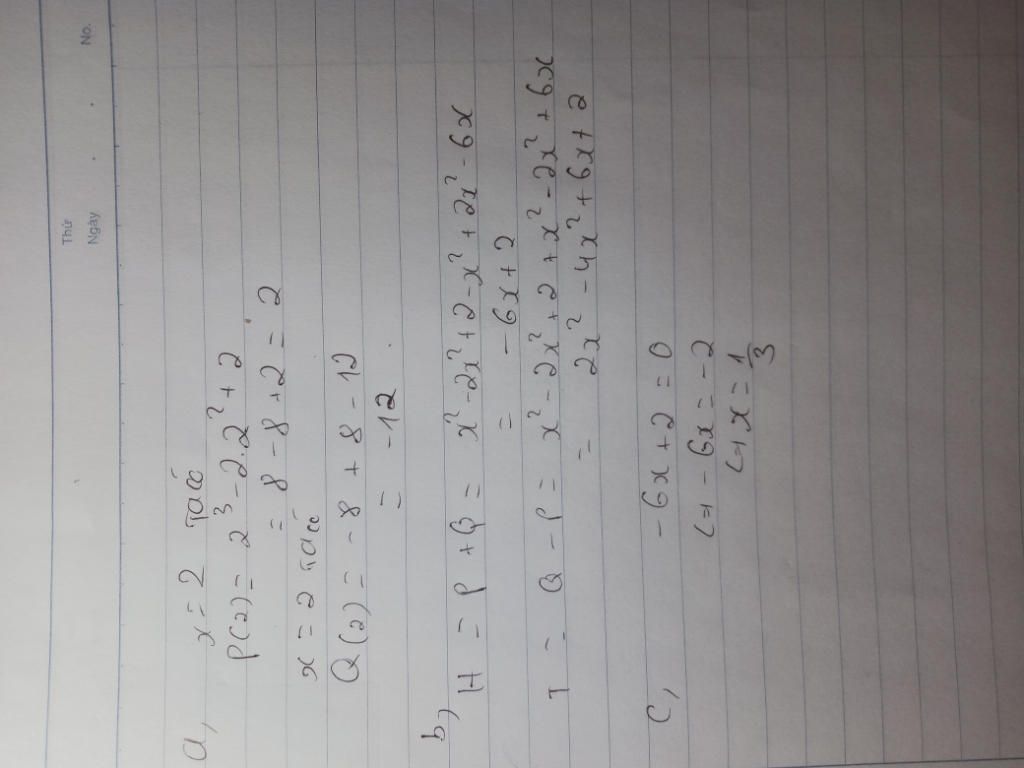 Thứ
Ngày
No.
a, x = 2 ta có
P(2) = 2³ - 2.2² + 2
= 8 - 8 + 2 = 2
x = 2 ta có
Q(2) = -8 + 8 - 12
= -12
b, H = P + Q = x² - 2x² + 2 - x² + 2x² - 6x
= -6x + 2
T = Q - P = x² - 2x² + 2 + x² - 2x² + 6x
= 2x² - 4x² + 6x + 2
c, -6x + 2 = 0
(-) -6x = -2
(-) x = 1/3